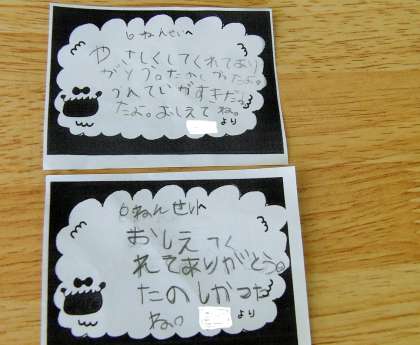 6ねんせいへ
やさしくしてくれてあり
がとう。たのしかったよ。
だよ。おしえてね。
より
6ねんせいへ
おしえてく
れてありがとう。
たのしかった
ね。
より